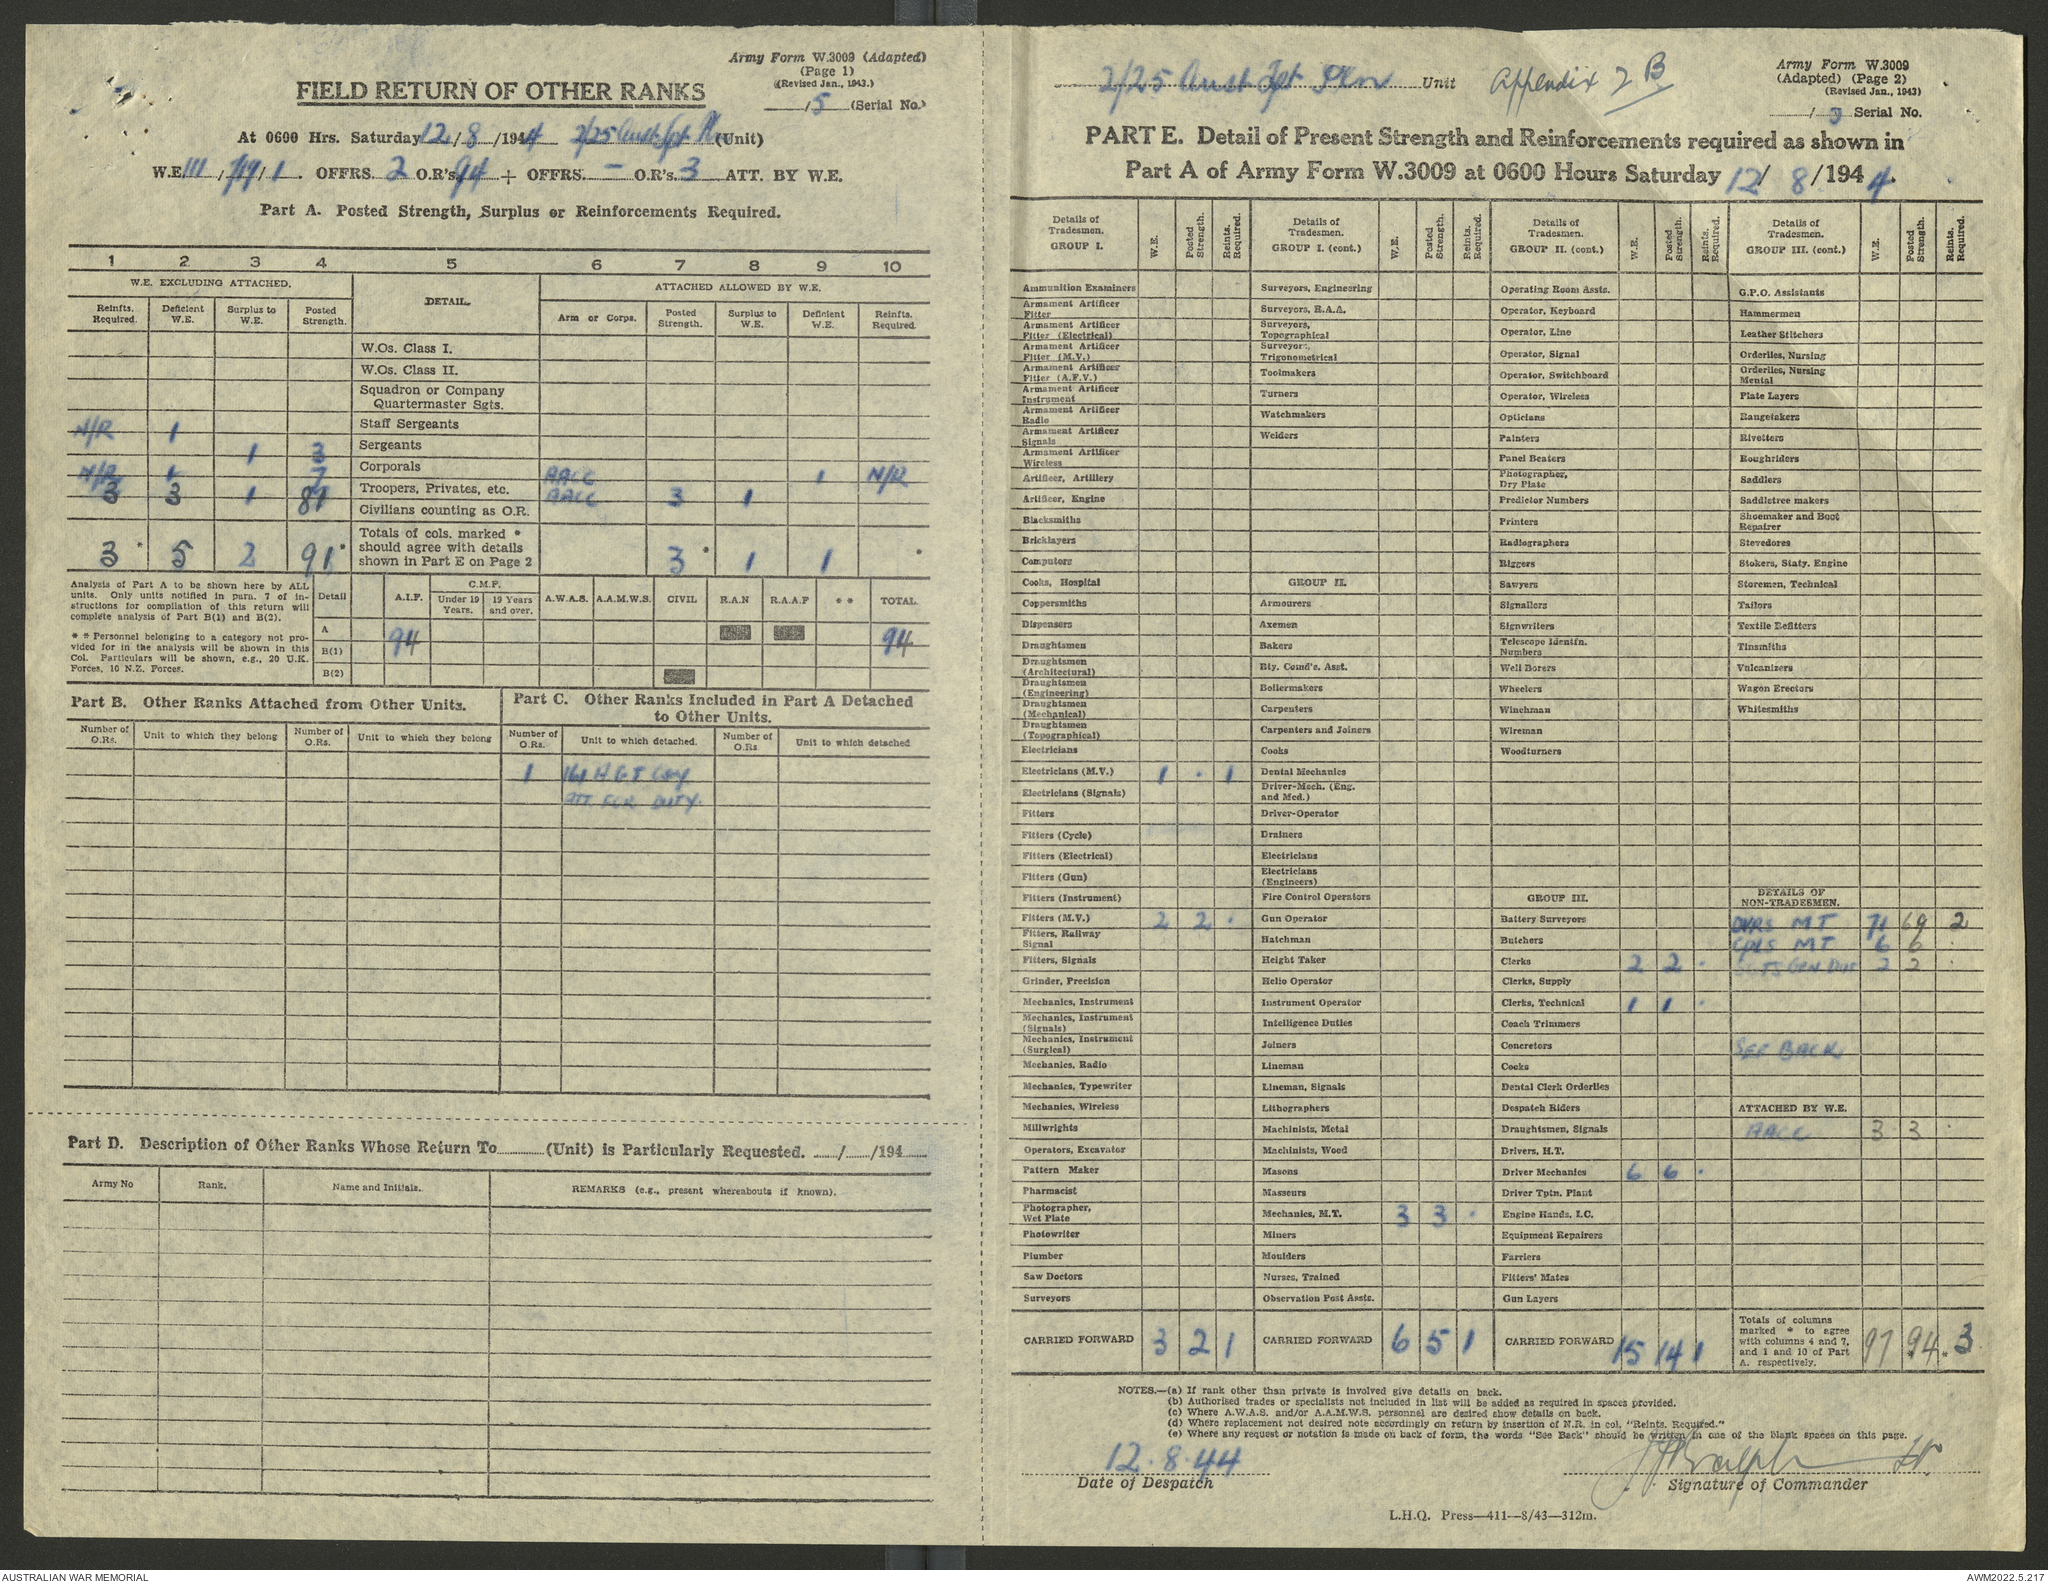 Army Form W.3009 (Adapted)
(Page 1)
(Revised Jan., 1943.)
FIELD RETURN OF OTHER RANKS
15 (Serial No.)
At 0600 Hrs. Saturday 12/8/1944 2/25 Aust Tpt Pl (Unit)
W.E. 111/719/1. OFFRS. 2 O.R's. 94 + OFFRS. - O.R's. 3 ATT. BY W.E.
Part A. Posted Strength, Surplus or Reinforcements Required.
1 2 3 4 5 6 7 8 9 10
W.E. EXCLUDING ATTACHED. DETAIL. ATTACHED ALLOWED BY W.E.
Reinfts. Required. Deficient W.E. Surplus to W.E. Posted Strength. Arm or Corps. Posted Strength. Surplus to W.E. Deficient W.E. Reinfts. Required.
W.Os. Class I.
W.Os. Class II.
Squadron or Company
Quartermaster Sgts.
N/R 1 Staff Sergeants
1 3 Sergeants
N/R 1 7 Corporals AACC 1 N/R
3 3 1 81 Troopers, Privates, etc. AACC 3 1
Civilians counting as O.R.
3 * 5 2 91 * Totals of cols. marked * should agree with details shown in Part E on Page 2 3 * 1 1 *
Analysis of Part A to be shown here by ALL
units. Only units notified in para. 7 of in-
structions for compilation of this return will
complete analysis of Part B(1) and B(2).
* * Personnel belonging to a category not pro-
vided for in the analysis will be shown in this
Col. Particulars will be shown, e.g., 20 U.K.
Forces, 10 N.Z. Forces.
Detail A.I.F. C.M.F. Under 19 Years. 19 Years and over. A.W.A.S. A.A.M.W.S. CIVIL R.A.N R.A.A.F * * TOTAL
A 94 94
B(1)
B(2)
Part B. Other Ranks Attached from Other Units.
Part C. Other Ranks Included in Part A Detached
to Other Units.
Number of O.Rs. Unit to which they belong Number of O.Rs. Unit to which they belong Number of O.Rs. Unit to which detached. Number of O.Rs Unit to which detached
1 161 A G T Coy
ATT FOR DUTY.
Part D. Description of Other Ranks Whose Return To.........(Unit) is Particularly Requested. ....../....../194......
Army No Rank. Name and Initials. REMARKS (e.g., present whereabouts if known).
2/25 Aust Tpt Pln Unit Appendix 2 B
Army Form W.3009
(Adapted) (Page 2)
(Revised Jan., 1943)
Serial No.
PART E. Detail of Present Strength and Reinforcements required as shown in
Part A of Army Form W.3009 at 0600 Hours Saturday 12/8/1944.
Details of Tradesmen. GROUP I. W.E. Posted Strength. Reints. Required.
Ammunition Examiners
Armament Artificer Fitter
Armament Artificer Fitter (Electrical)
Armament Artificer Fitter (M.V.)
Armament Artificer Fitter (A.F.V.)
Armament Artificer Instrument
Armament Artificer Radio
Armament Artificer Signals
Armament Artificer Wireless
Artificer, Artillery
Artificer, Engine
Blacksmiths
Bricklayers
Computors
Cooks, Hospital
Coppersmiths
Dispensers
Draughtsmen
Draughtsmen (Architectural)
Draughtsmen (Engineering)
Draughtsmen (Mechanical)
Draughtsmen (Topographical)
Electricians
Electricians (M.V.) 1 . 1
Electricians (Signals)
Fitters
Fitters (Cycle)
Fitters (Electrical)
Fitters (Gun)
Fitters (Instrument)
Fitters (M.V.) 2 2 .
Fitters, Railway Signal
Fitters, Signals
Grinder, Precision
Mechanics, Instrument
Mechanics, Instrument (Signals)
Mechanics, Instrument (Surgical)
Mechanics, Radio
Mechanics, Typewriter
Mechanics, Wireless
Millwrights
Operators, Excavator
Pattern Maker
Pharmacist
Photographer, Wet Plate
Photowriter
Plumber
Saw Doctors
Surveyors
CARRIED FORWARD 3 2 1
Details of Tradesmen. GROUP I. (cont.) W.E. Posted Strength. Reints. Required.
Surveyors, Engineering
Surveyors, R.A.A.
Surveyors, Topographical
Surveyors, Trigonometrical
Toolmakers
Turners
Watchmakers
Welders
GROUP II.
Armourers
Axemen
Bakers
Bty. Comd's. Asst.
Boilermakers
Carpenters
Carpenters and Joiners
Cooks
Dental Mechanics
Driver-Mech. (Eng. and Med.)
Driver-Operator
Drainers
Electricians
Electricians (Engineers)
Fire Control Operators
Gun Operator
Hatchman
Height Taker
Helio Operator
Instrument Operator
Intelligence Duties
Joiners
Lineman
Lineman, Signals
Lithographers
Machinists, Metal
Machinists, Wood
Masons
Masseurs
Mechanics, M.T. 3 3 .
Miners
Moulders
Nurses, Trained
Observation Post Assts.
CARRIED FORWARD 6 5 1
Details of Tradesmen. GROUP II. (cont.) W.E. Posted Strength. Reints. Required.
Operating Room Assts.
Operator, Keyboard
Operator, Line
Operator, Signal
Operator, Switchboard
Operator, Wireless
Opticians
Painters
Panel Beaters
Photographer, Dry Plate
Predictor Numbers
Printers
Radiographers
Riggers
Sawyers
Signallers
Signwriters
Telescope Identfn. Numbers
Well Borers
Wheelers
Winchman
Wireman
Woodturners
GROUP III.
Battery Surveyors
Butchers
Clerks 2 2 .
Clerks, Supply
Clerks, Technical 1 1 .
Coach Trimmers
Concretors
Cooks
Dental Clerk Orderlies
Despatch Riders
Draughtsmen, Signals
Drivers, H.T.
Driver Mechanics 6 6 .
Driver Tptn. Plant
Engine Hands, I.C.
Equipment Repairers
Farriers
Fitters' Mates
Gun Layers
CARRIED FORWARD 15 14 1
Details of Tradesmen. GROUP III. (cont.) W.E. Posted Strength. Reints. Required.
G.P.O. Assistants
Hammermen
Leather Stitchers
Orderlies, Nursing
Orderlies, Nursing Mental
Plate Layers
Rangetakers
Rivetters
Roughriders
Saddlers
Saddletree makers
Shoemaker and Boot Repairer
Stevedores
Stokers, Staty. Engine
Storemen, Technical
Tailors
Textile Refitters
Tinsmiths
Vulcanizers
Wagon Erectors
Whitesmiths
DETAILS OF NON-TRADESMEN.
DVRS MT 71 69 2
CPLS MT 6 6 .
SGTS GEN DUT 2 2 .
SEE BACK
ATTACHED BY W.E.
AACC 3 3 .
Totals of columns marked * to agree with columns 4 and 7, and 1 and 10 of Part A. respectively. 97 *94 *3
NOTES.—(a) If rank other than private is involved give details on back.
(b) Authorised trades or specialists not included in list will be added as required in spaces provided.
(c) Where A.W.A.S. and/or A.A.M.W.S. personnel are desired show details on back.
(d) Where replacement not desired note accordingly on return by insertion of N.R. in col. "Reints. Required."
(e) Where any request or notation is made on back of form, the words "See Back" should be written in one of the blank spaces on this page.
12.8.44
Date of Despatch
Lt.
Signature of Commander
L.H.Q. Press—411—8/43—312m.
AUSTRALIAN WAR MEMORIAL
AWM2022.5.217